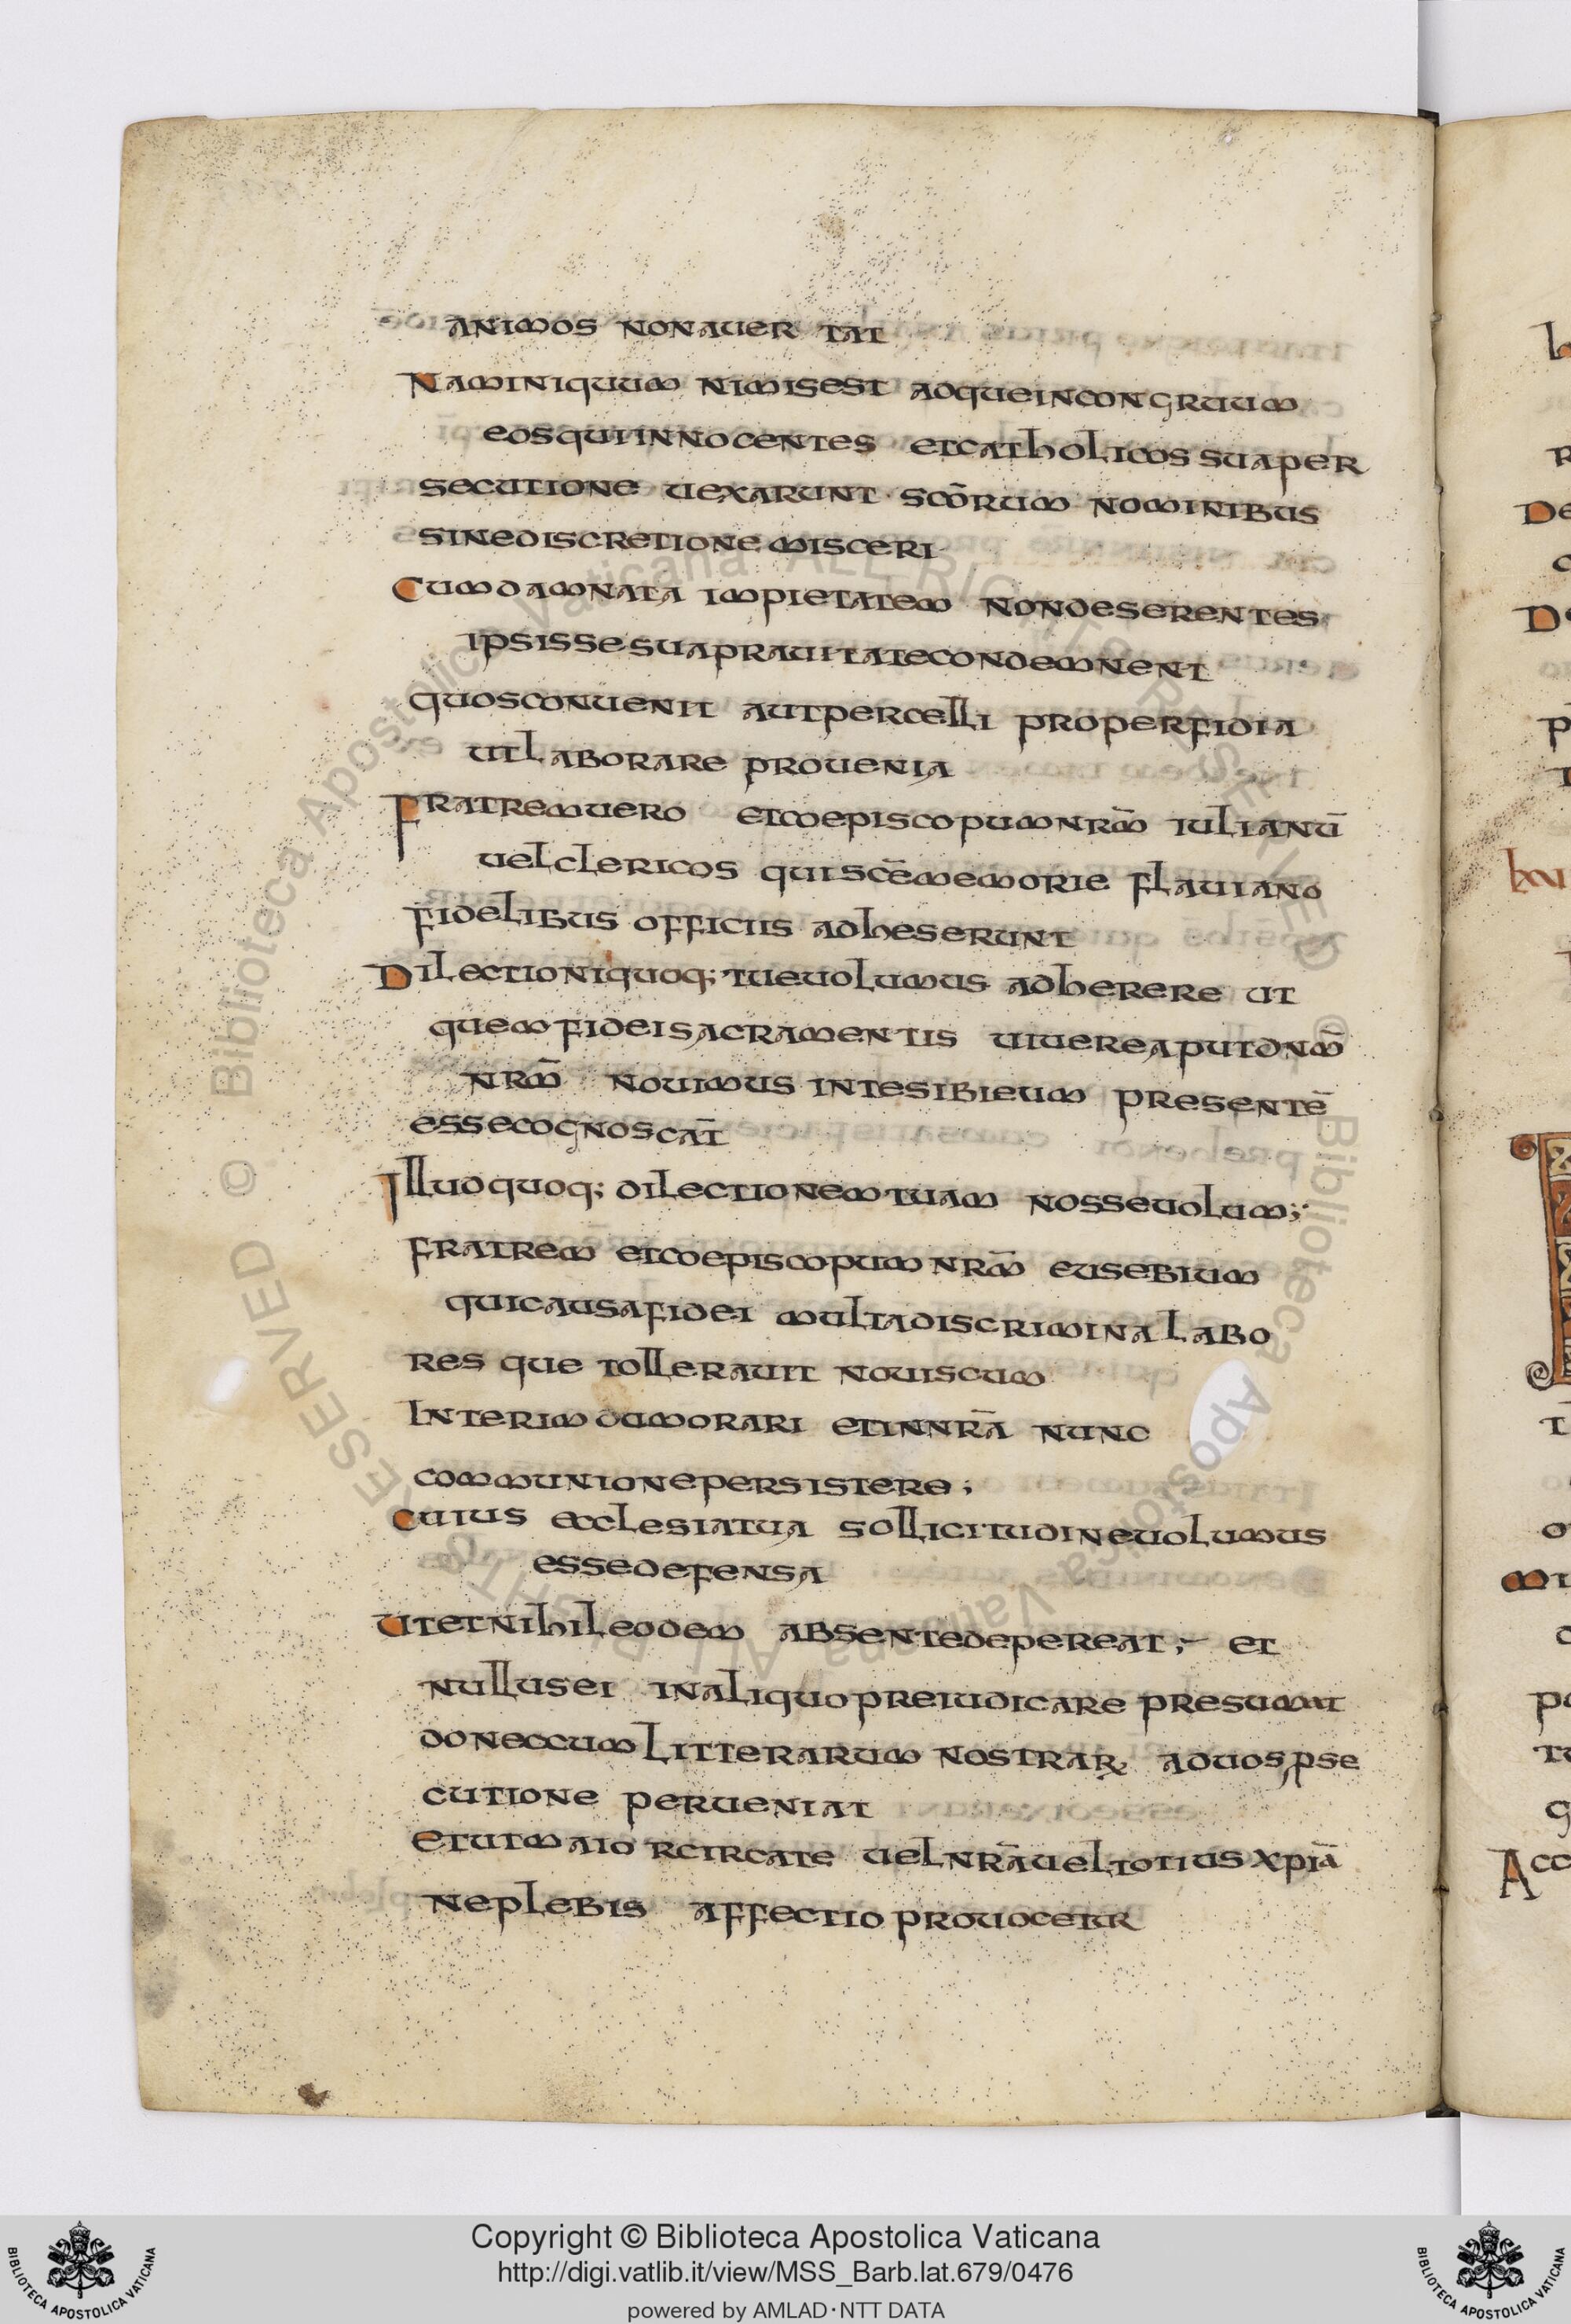 animos non auertat
Nam iniquum nimis est adque incongruum
eos qui innocentes et catholicos sua per
secutione uexarunt · scōrum nominibus
sine discretione misceri
Cum damnata impietatem non deserentes
ipsi sse sua prauitate condemnent
quos conuenit aut percelli pro perfidia
ut laborare pro uenia
Fratrem uero et coepiscopum nrm̄ iulianū
uel clericos qui scē memorie flauiano
fidelibus officiis adheserunt
Dilectioni quoq; tue uolumus adherere ut
quem fidei sacramentis uiuere aput dnm̄
nrm̄ nouimus in te sibi eum presentē
esse cognoscat̄
Illud quoq; dilectionem tuam nosse uolum;
fratrem et coepiscopum nrm̄ eusebium
qui causa fidei multa discrimina labo
res que tollerauit nouiscum
Interim dumorari et in nrā nunc
communione persistere;
Cuius ecclesia tua sollicitudine uolumus
esse defensa
Ut et nihil eodem absente depereat; et
nullus ei in aliquo preiudicare presumat
donec cum litterarum nostrar aduos pse
cutione perueniat
Et ut maior circa te uel nrā uel totius xpiā
ne plebis affectio prouocetur
Copyright © Biblioteca Apostolica Vaticana
http://digi.vatlib.it/view/MSS_Barb.lat.679/0476
powered by AMLAD·NTT DATA
BIBLIOTECA APOSTOLICA VATICANA
BIBLIOTECA APOSTOLICA VATICANA